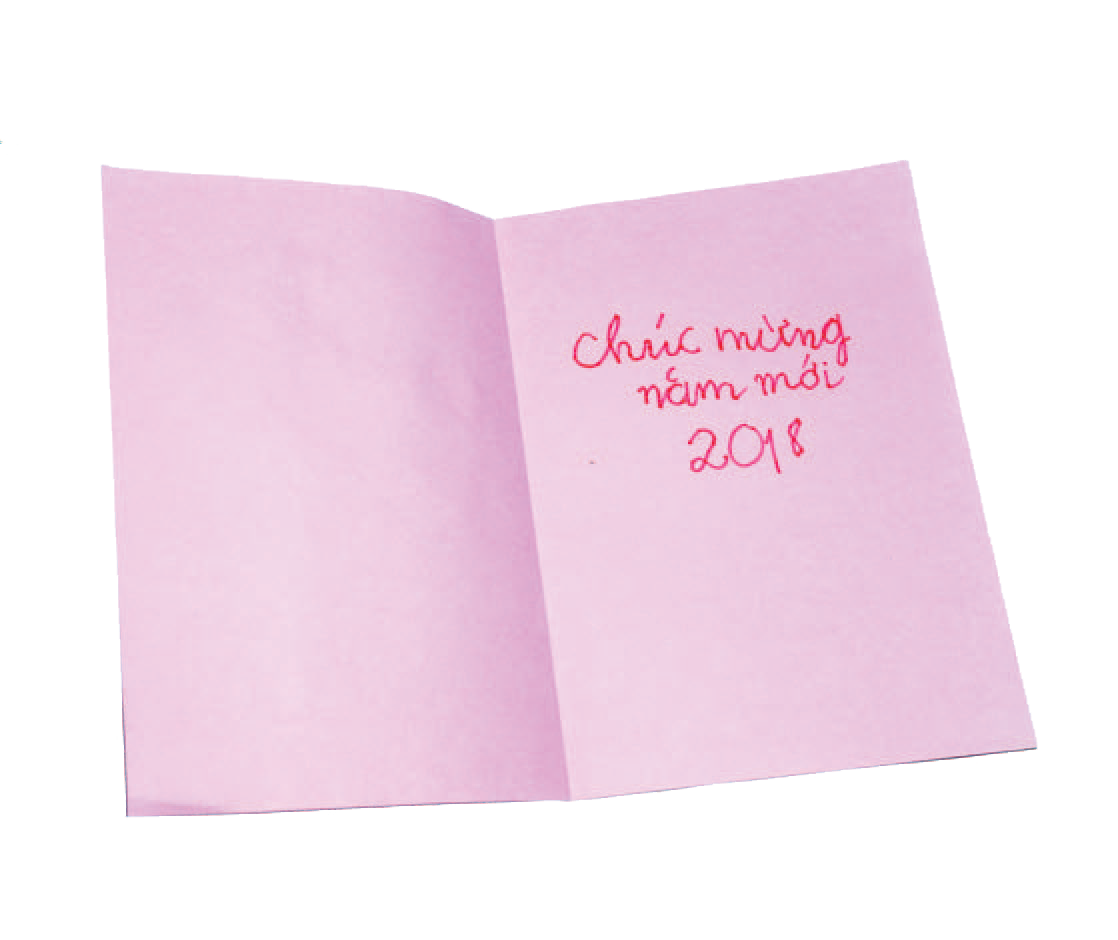 chúc mừng
năm mới
2018